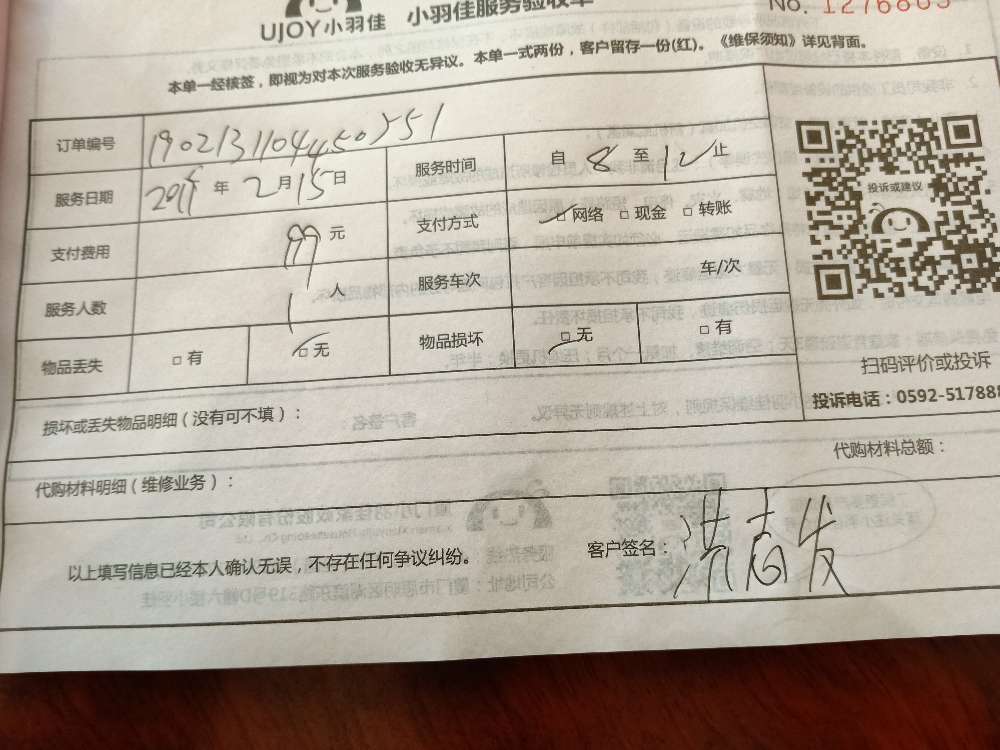 UJOY小羽佳 小羽佳服务验收单 No. 1276805
本单一经核签，即视为对本次服务验收无异议。本单一式两份，客户留存一份(红)。《维保须知》详见背面。
订单编号 1902131104450551
服务日期 2019年2月15日 服务时间 自8至12止
支付费用 99元 支付方式 □网络 □现金 □转账
服务人数 1人 服务车次 车/次
物品丢失 □有 □无 物品损坏 □无 □有
投诉或建议
扫码评价或投诉
投诉电话：0592-517888
损坏或丢失物品明细（没有可不填）：
代购材料明细（维修业务）： 代购材料总额：
以上填写信息已经本人确认无误，不存在任何争议纠纷。 客户签名：洪志发